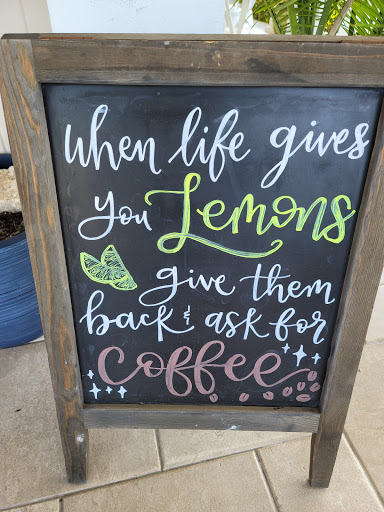 when life gives
you Lemons
give them
back & ask for
coffee